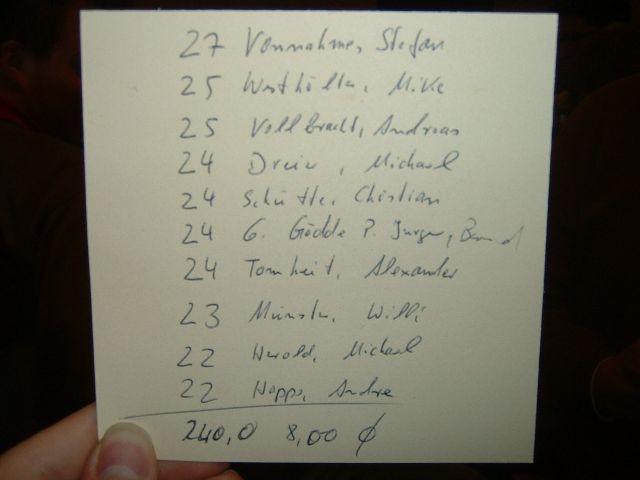 27 Vonnahme, Stefan
25 Westhölter, Mike
25 Vollbracht, Andreas
24 Dreier, Michael
24 Schütte, Christian
24 G. Gödde P. Jürgen, Bernd
24 Tomheit, Alexander
23 Münster, Willi
22 Herold, Michael
22 Happe, Andre
240,0 8,00 ∅